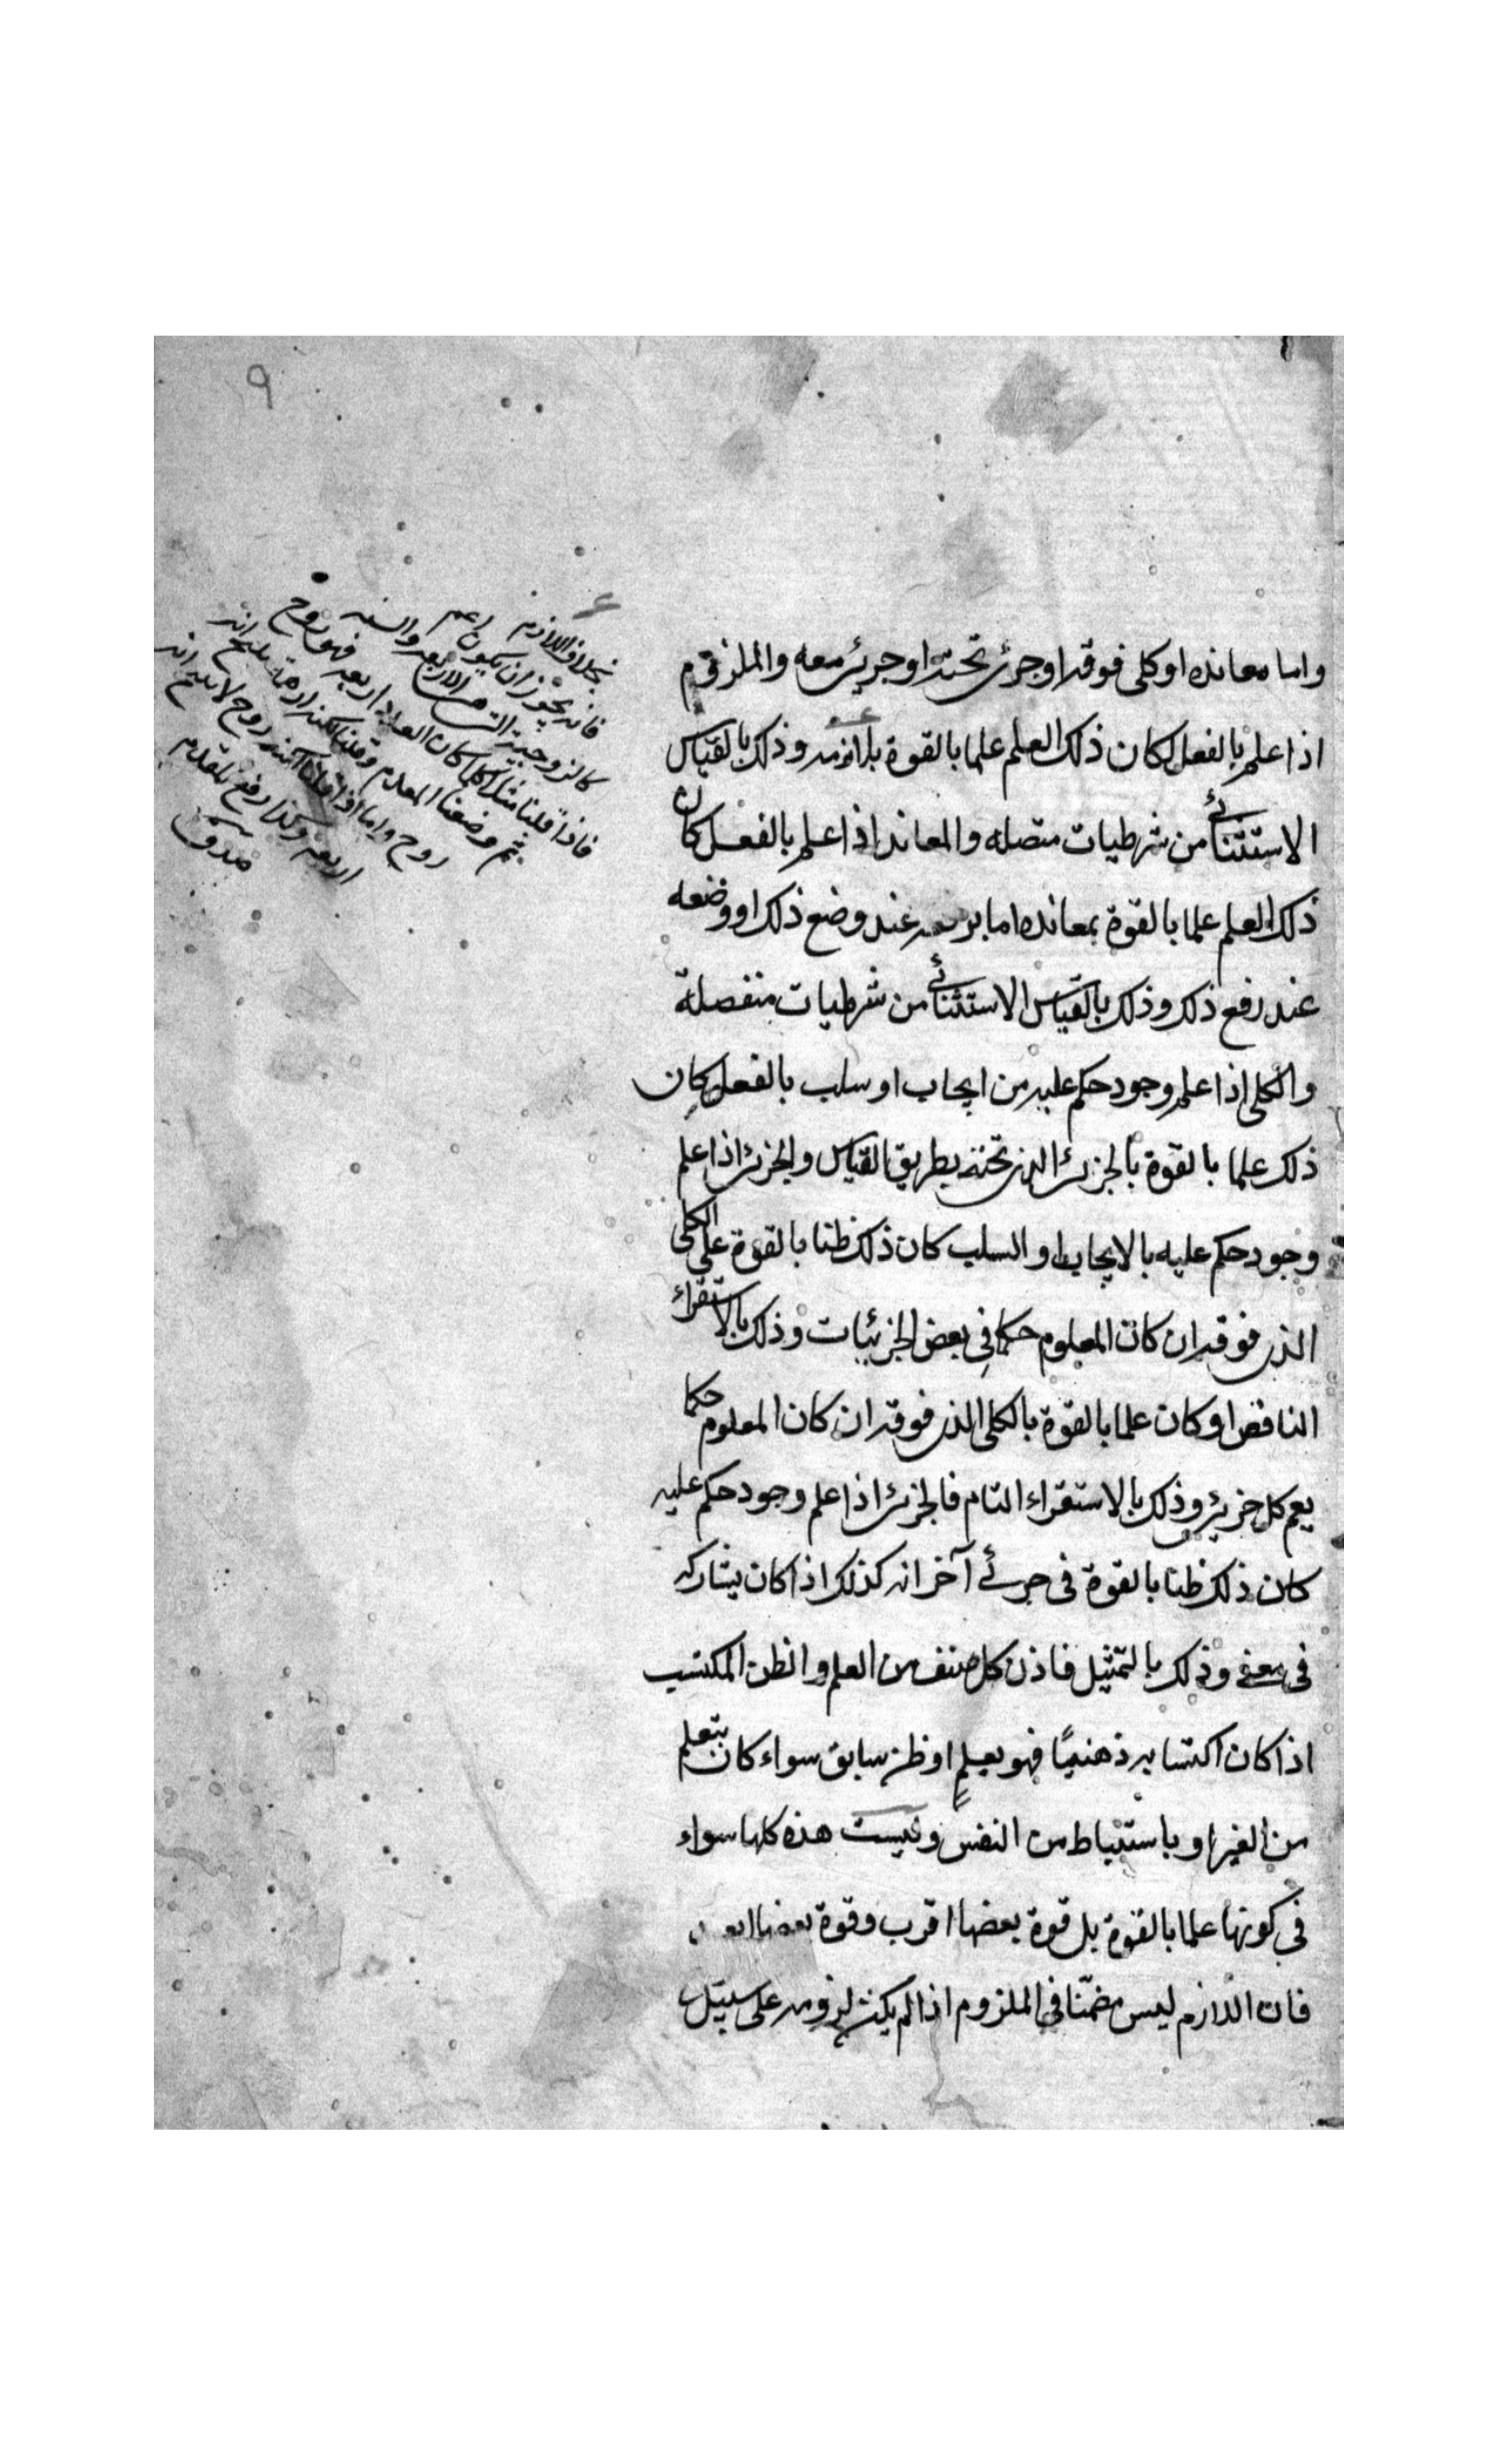 ٩
واما معانده او كلى فوقه او جزئى تحته او جزئى معه والملزوم
اذا علم بالفعل كان ذلك العلم علما بالقوة بلازمه وذلك بالقياس
الاستثنائى من شرطيات متصله والمعاند اذا علم بالفعل كان
ذلك العلم علما بالقوة بمعانده اما برفعه عند وضع ذلك او وضعه
عند رفع ذلك وذلك بالقياس الاستثنائى من شرطيات منفصلة
والكلى اذا علم وجود حكم عليه من ايجاب او سلب بالفعل كان
ذلك علما بالقوة بالجزئى الذى تحته بطريق القياس والجزئى اذا علم
وجود حكم عليه بالايجاب او السلب كان ذلك ظنا بالقوة على الكلى
الذى فوقه ان كان المعلوم حكما فى بعض الجزئيات وذلك بالاستقراء
الناقص او كان علما بالقوة بالكلى الذى فوقه ان كان المعلوم حكما
يعم كل جزئى وذلك بالاستقراء التام فالجزئى اذا علم وجود حكم عليه
كان ذلك ظنا بالقوة فى جزئے آخر انه كذلك اذا كان يشاركه
فى معنى وذلك بالتمثيل فاذن كل صنف من العلم والظن المكتسب
اذا كان اكتسابه ذهنيًا فهو بعلمٍ او ظن سابق سواء كان بتعلم
من الغير او باستنباط من النفس وليست هذه كلها سواء
فى كونها علما بالقوة بل قوة بعضها اقرب وقوة بعضها ابعد
فان اللازم ليس مضمّنا فى الملزوم اذا لم يكن لزومه على سبيل
بخلاف اللازم
فانه يجوز ان يكون اعم
كالزوجية الاربعة والستة
فاذا قلنا مثلا كلما كان العدد اربعه فهو زوج
ثم وضعنا المقدم وقلنا لكنه اربعة ينتج انه
زوج واما اذا قلنا لكنه زوج لا ينتج انه
اربعه وكذا رفع المقدم